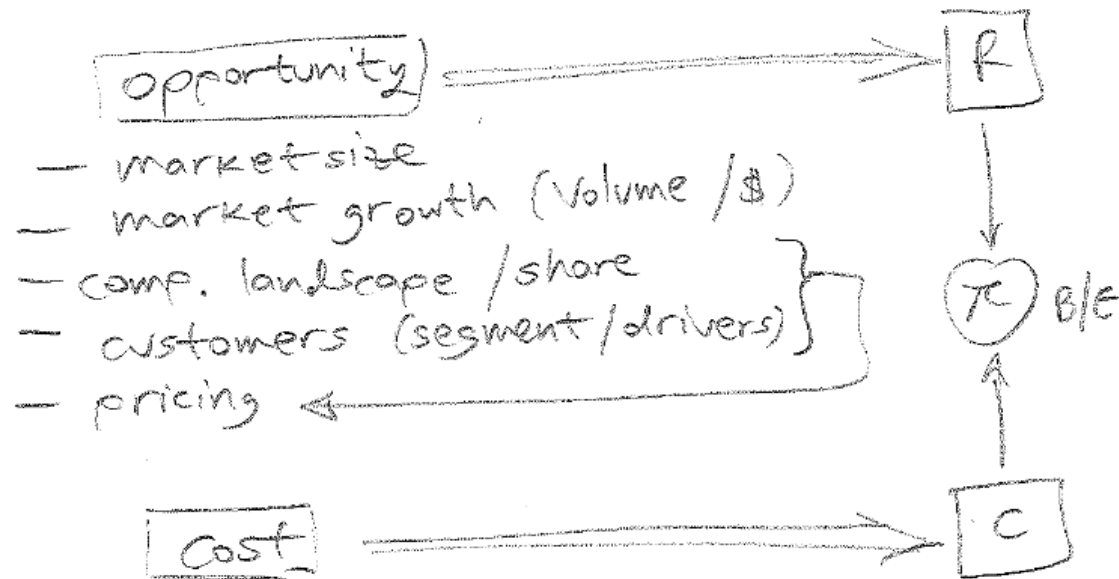 opportunity
R
- market size
- market growth (volume / $)
- comp. landscape / share
- customers (segment / drivers)
- pricing
π B/E
cost
C